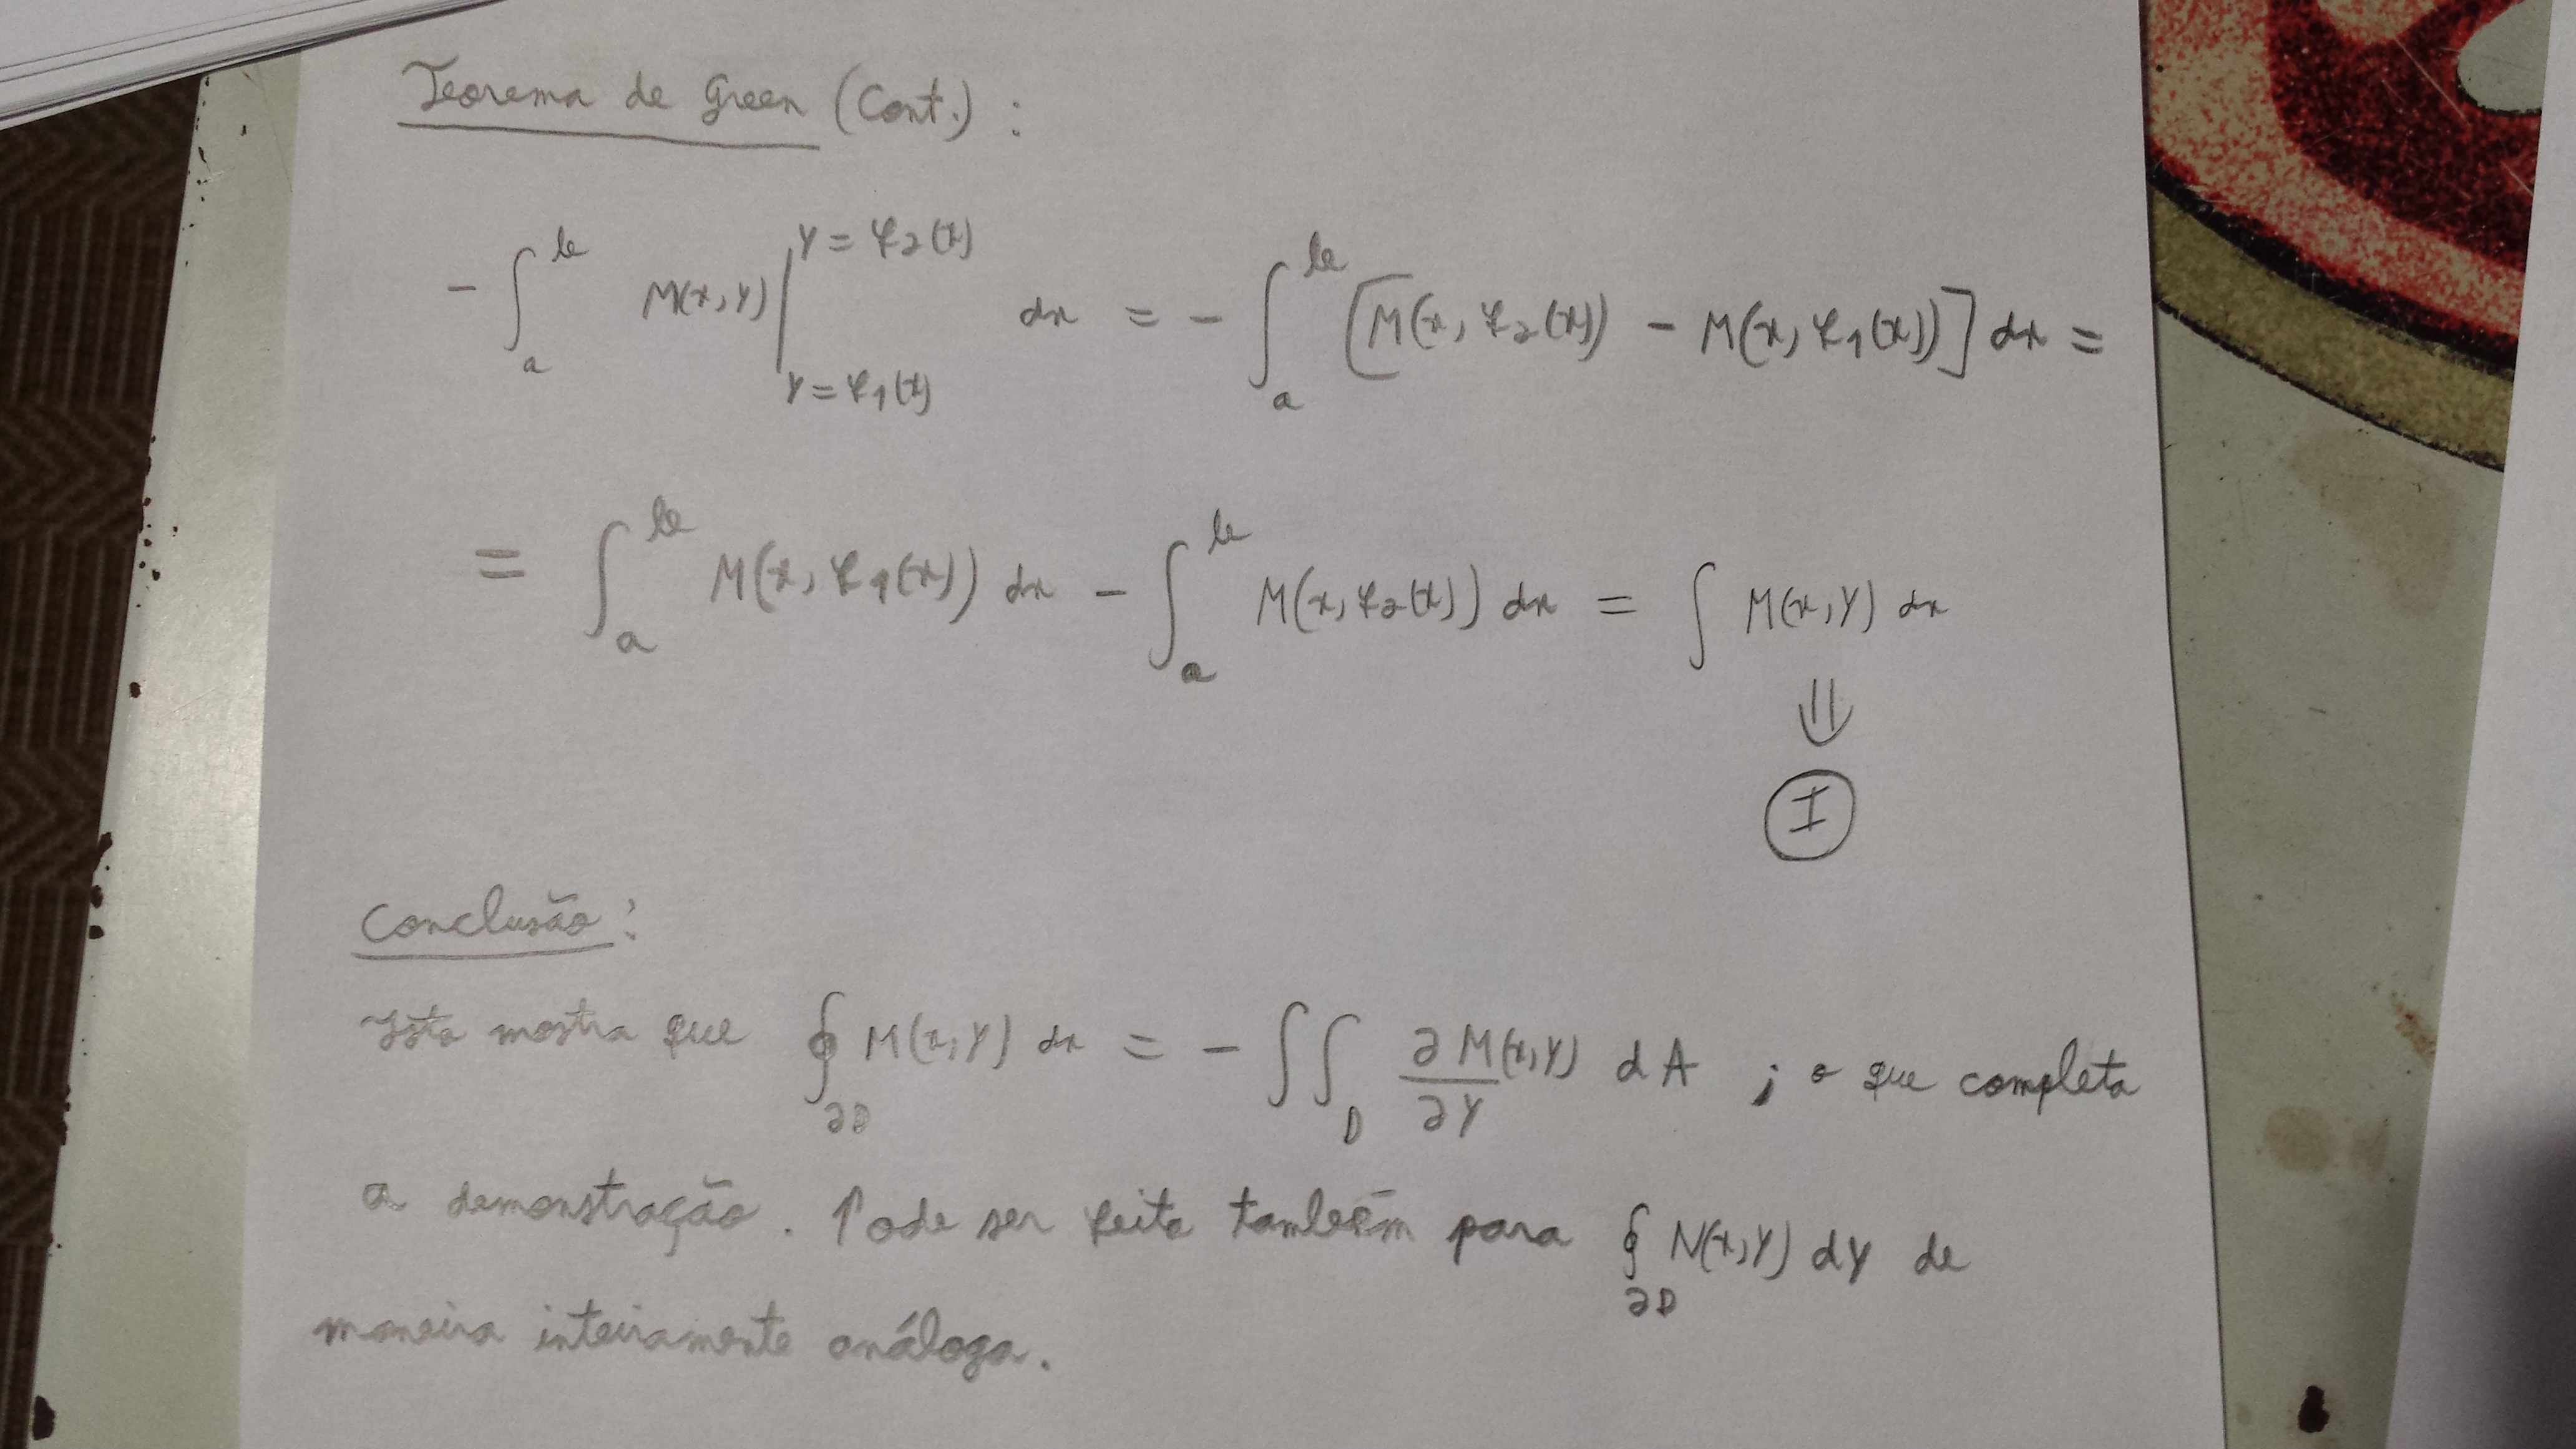 Teorema de Green (Cont.) :
- ∫_a^b M(x,y) |_{y=φ1(x)}^{y=φ2(x)} dx = - ∫_a^b [M(x,φ2(x)) - M(x,φ1(x))] dx =
= ∫_a^b M(x,φ1(x)) dx - ∫_a^b M(x,φ2(x)) dx = ∫ M(x,y) dx
⇓
I
Conclusão :
Isto mostra que ∮_{∂D} M(x,y) dx = - ∫∫_D ∂M(x,y)/∂y dA ; o que completa
a demonstração. Pode ser feita também para ∮_{∂D} N(x,y) dy de
maneira inteiramente análoga.